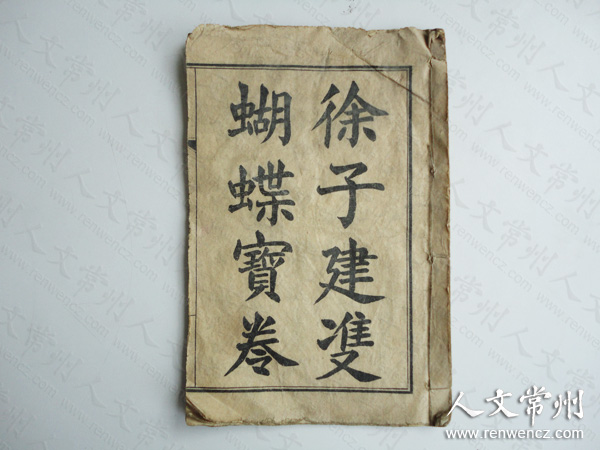 徐子建雙
蝴蝶寶卷
人文常州
www.renwencz.com